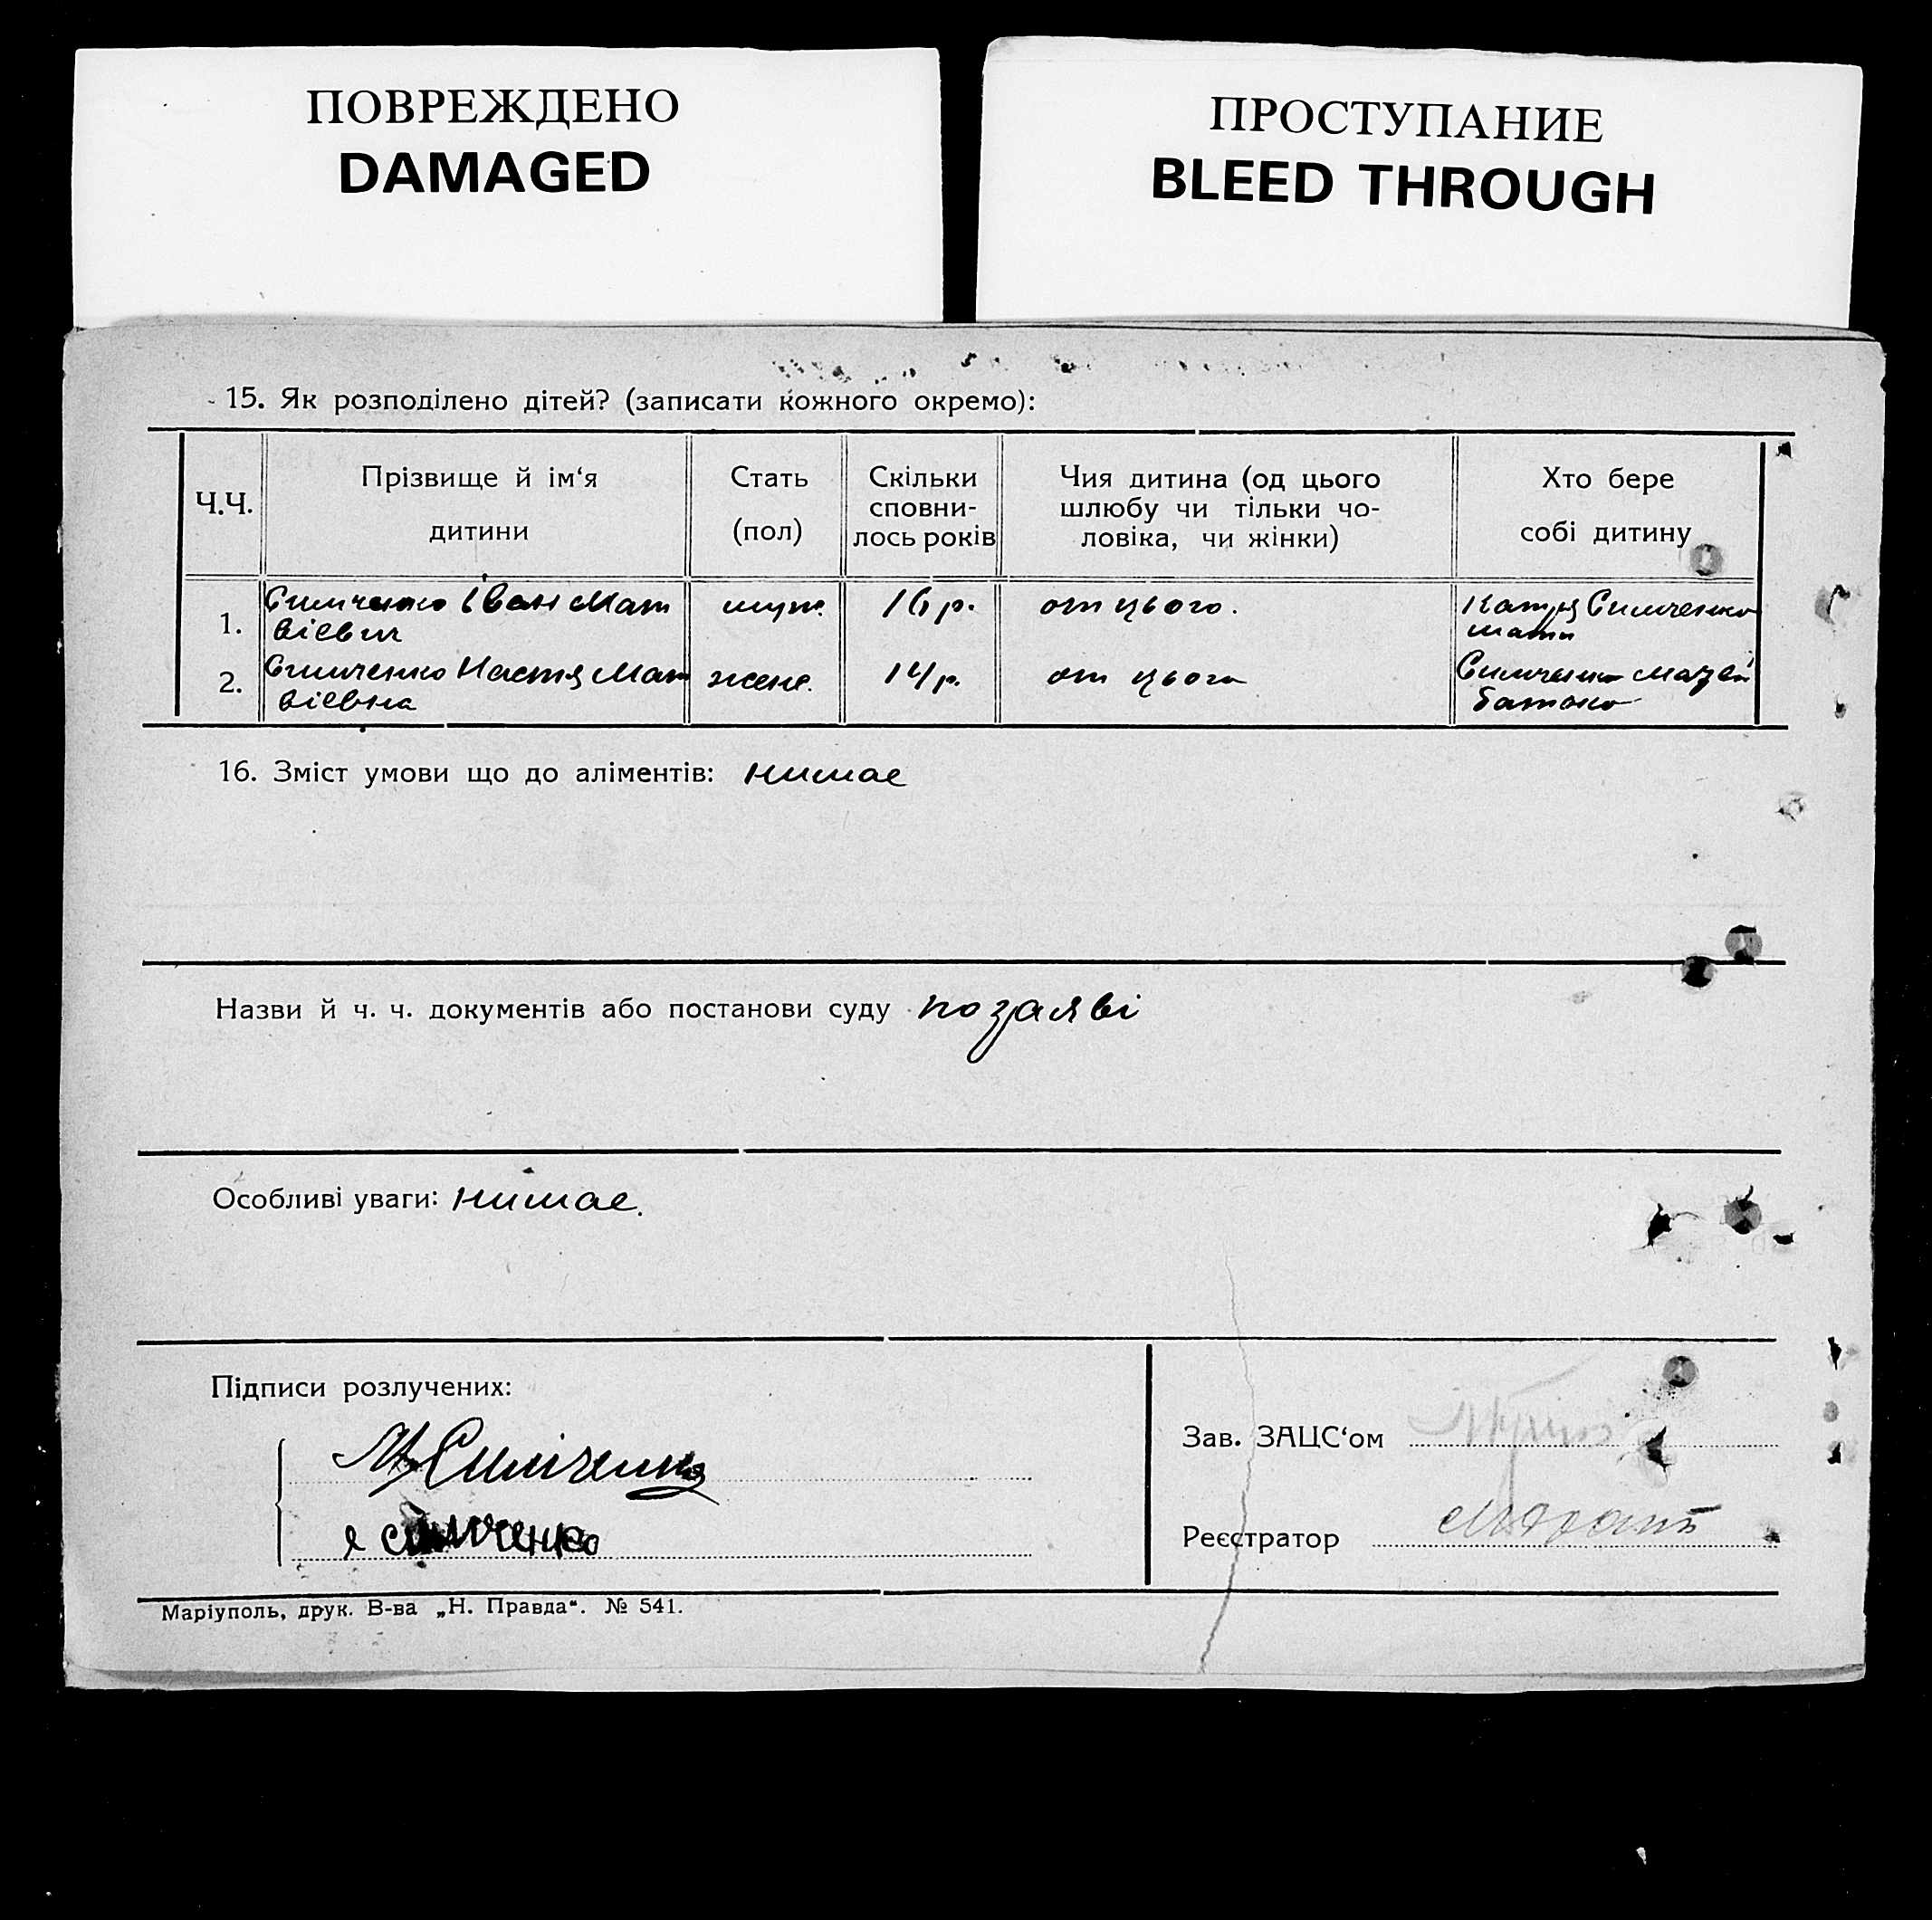 ПОВРЕЖДЕНО
DAMAGED
ПРОСТУПАНИЕ
BLEED THROUGH
15. Як розподілено дітей? (записати кожного окремо):
Ч.Ч.
Прізвище й ім‘я
дитини
Стать
(пол)
Скільки
сповни-
лось років
Чия дитина (од цього
шлюбу чи тільки чо-
ловіка, чи жінки)
Хто бере
собі дитину
1.
Симченко Іван Мат
віевич
муж.
16 р.
от цього.
Катря Симченко
мати
2.
Симченко Настя Мат
віевна
жен.
14 р.
от цього
Симченко
батько
16. Зміст умови що до аліментів: нимае
Назви й ч. ч. документів або постанови суду по заяві
Особливі уваги: нимае.
Підписи розлучених:
М Симченко
Симченко
Зав. ЗАЦС‘ом
Реєстратор
Маріуполь, друк. В-ва „Н. Правда“. № 541.